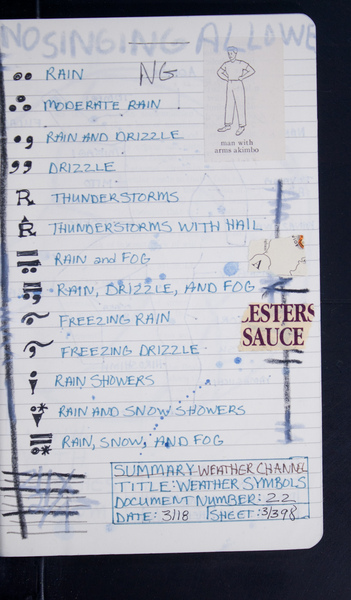 NO SINGING ALLOWE
RAIN
NG
MODERATE RAIN
RAIN AND DRIZZLE
man with
arms akimbo
DRIZZLE
THUNDERSTORMS
THUNDERSTORMS WITH HAIL
RAIN and FOG
RAIN, DRIZZLE, AND FOG
FREEZING RAIN
ESTERS
SAUCE
FREEZING DRIZZLE
RAIN SHOWERS
RAIN AND SNOW SHOWERS
RAIN, SNOW, AND FOG
SUMMARY: WEATHER CHANNEL
TITLE: WEATHER SYMBOLS
DOCUMENT NUMBER: 22
DATE: 3/18 SHEET: 3/398